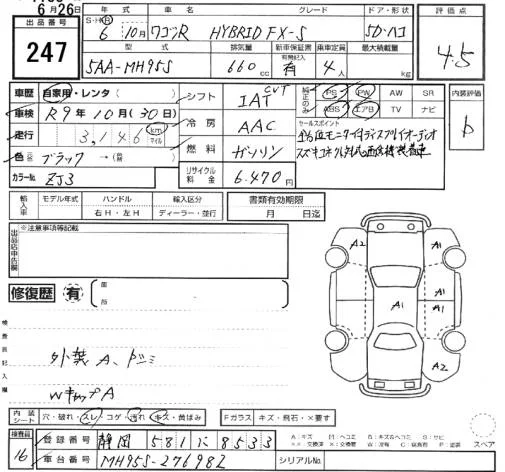 6月26日
出品番号
247
年式 車名 グレード ドア・形状
S・H・R
6 10月 ワゴンR HYBRID FX-S 5D・ハコ
型式 排気量 新車保証書 乗車定員 最大積載量
有 機記入
5AA-MH95S 660 cc 有 4人 kg
評価点
4.5
車歴 自家用・レンタ( )
車検 R9年10月(30日)
走行 3,146 km マイル
色 ブラック→( )
カラーNo. ZJ3
シフト IAT CVT
冷房 AAC
燃料 ガソリン
リサイクル料金 6,470円
純正のみ
PS PW AW SR
ABS エアB TV ナビ
セールスポイント
内装評価
b
輸入車 モデル年式 ハンドル 輸入区分
右H・左H ディーラー・並行
書類有効期限
月 日迄
出品店申告欄
※注意事項等記載
修復歴 有 箇所
検査員記入欄
外装A、ドミ
WキップA
A2 A1
A1 A1
A1
A2
内装シート 穴・破れ・スレ・コゲ・汚れ・キズ・黄ばみ
Fガラス キズ・飛石・×要す
検査員 16
登録番号 静岡 581 に 8533
車台番号 MH95S-276982
シリアルNo.
A:キズ M:ヘコミ B:キズ&ヘコミ S:サビ
スペア